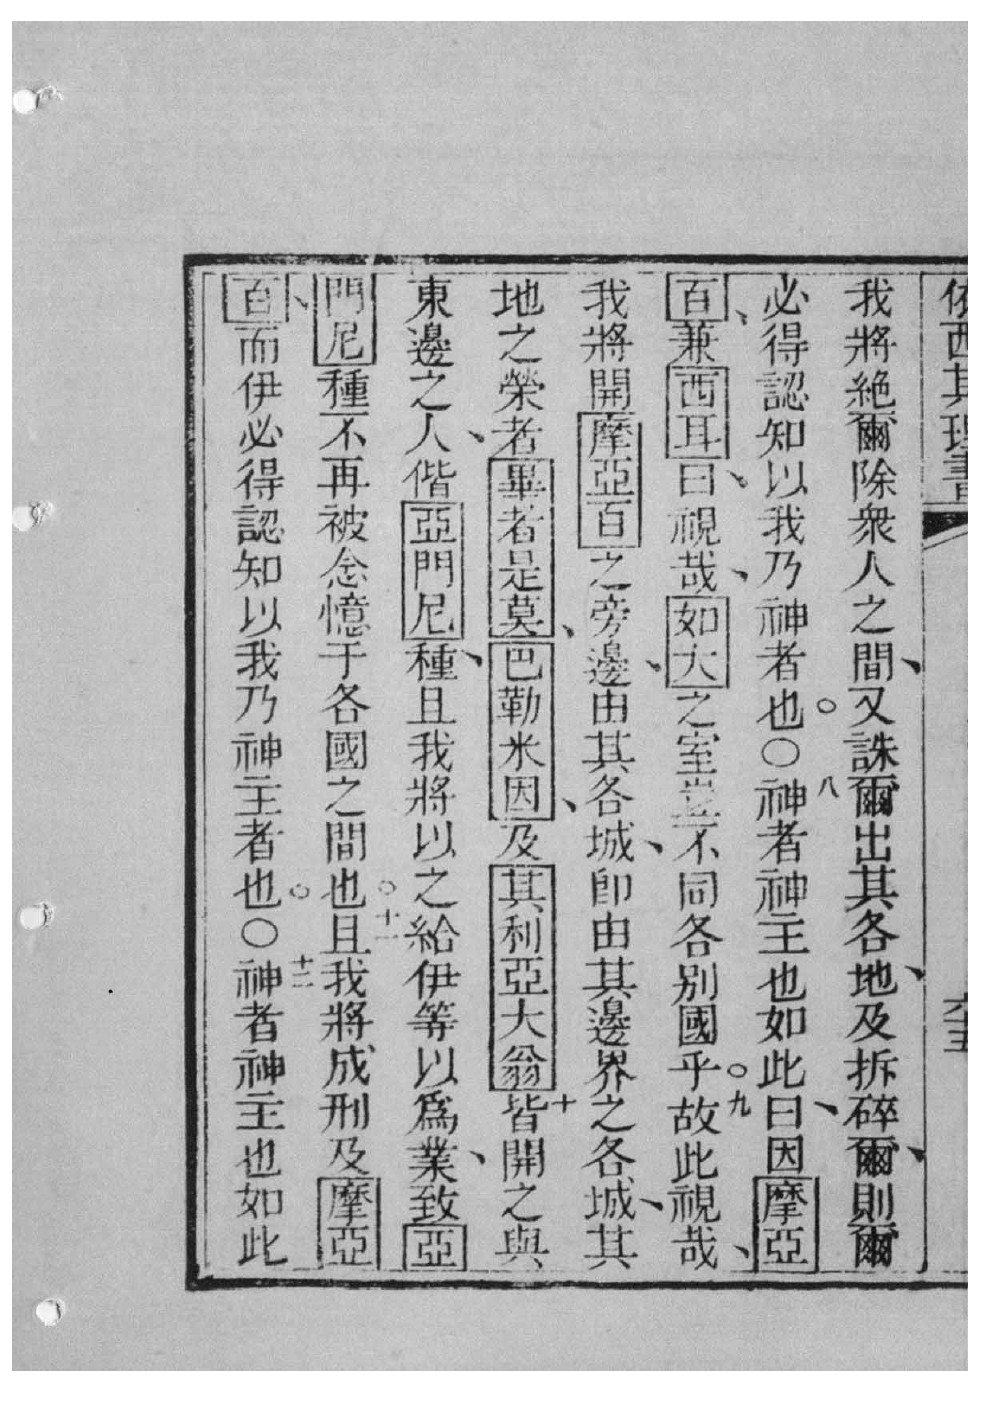 依西其理書
我將絕爾除衆人之間、又誅爾出其各地、及拆碎爾、則爾
必得認知以我乃神者也。○八神者神主也如此曰、因摩亞
百、兼西耳曰、視哉、如大之室豈不同各別國乎。九故此視哉、
我將開摩亞百之旁邊、由其各城、卽由其邊界之各城、其
地之榮者畢者是莫、巴勒米因、及其利亞大翁十皆開之與
東邊之人、偕亞門尼種、且我將以之給伊等以爲業、致亞
門尼種不再被念憶于各國之間也。十一且我將成刑及摩亞
百、而伊必得認知以我乃神主者也。○十二神者神主也如此